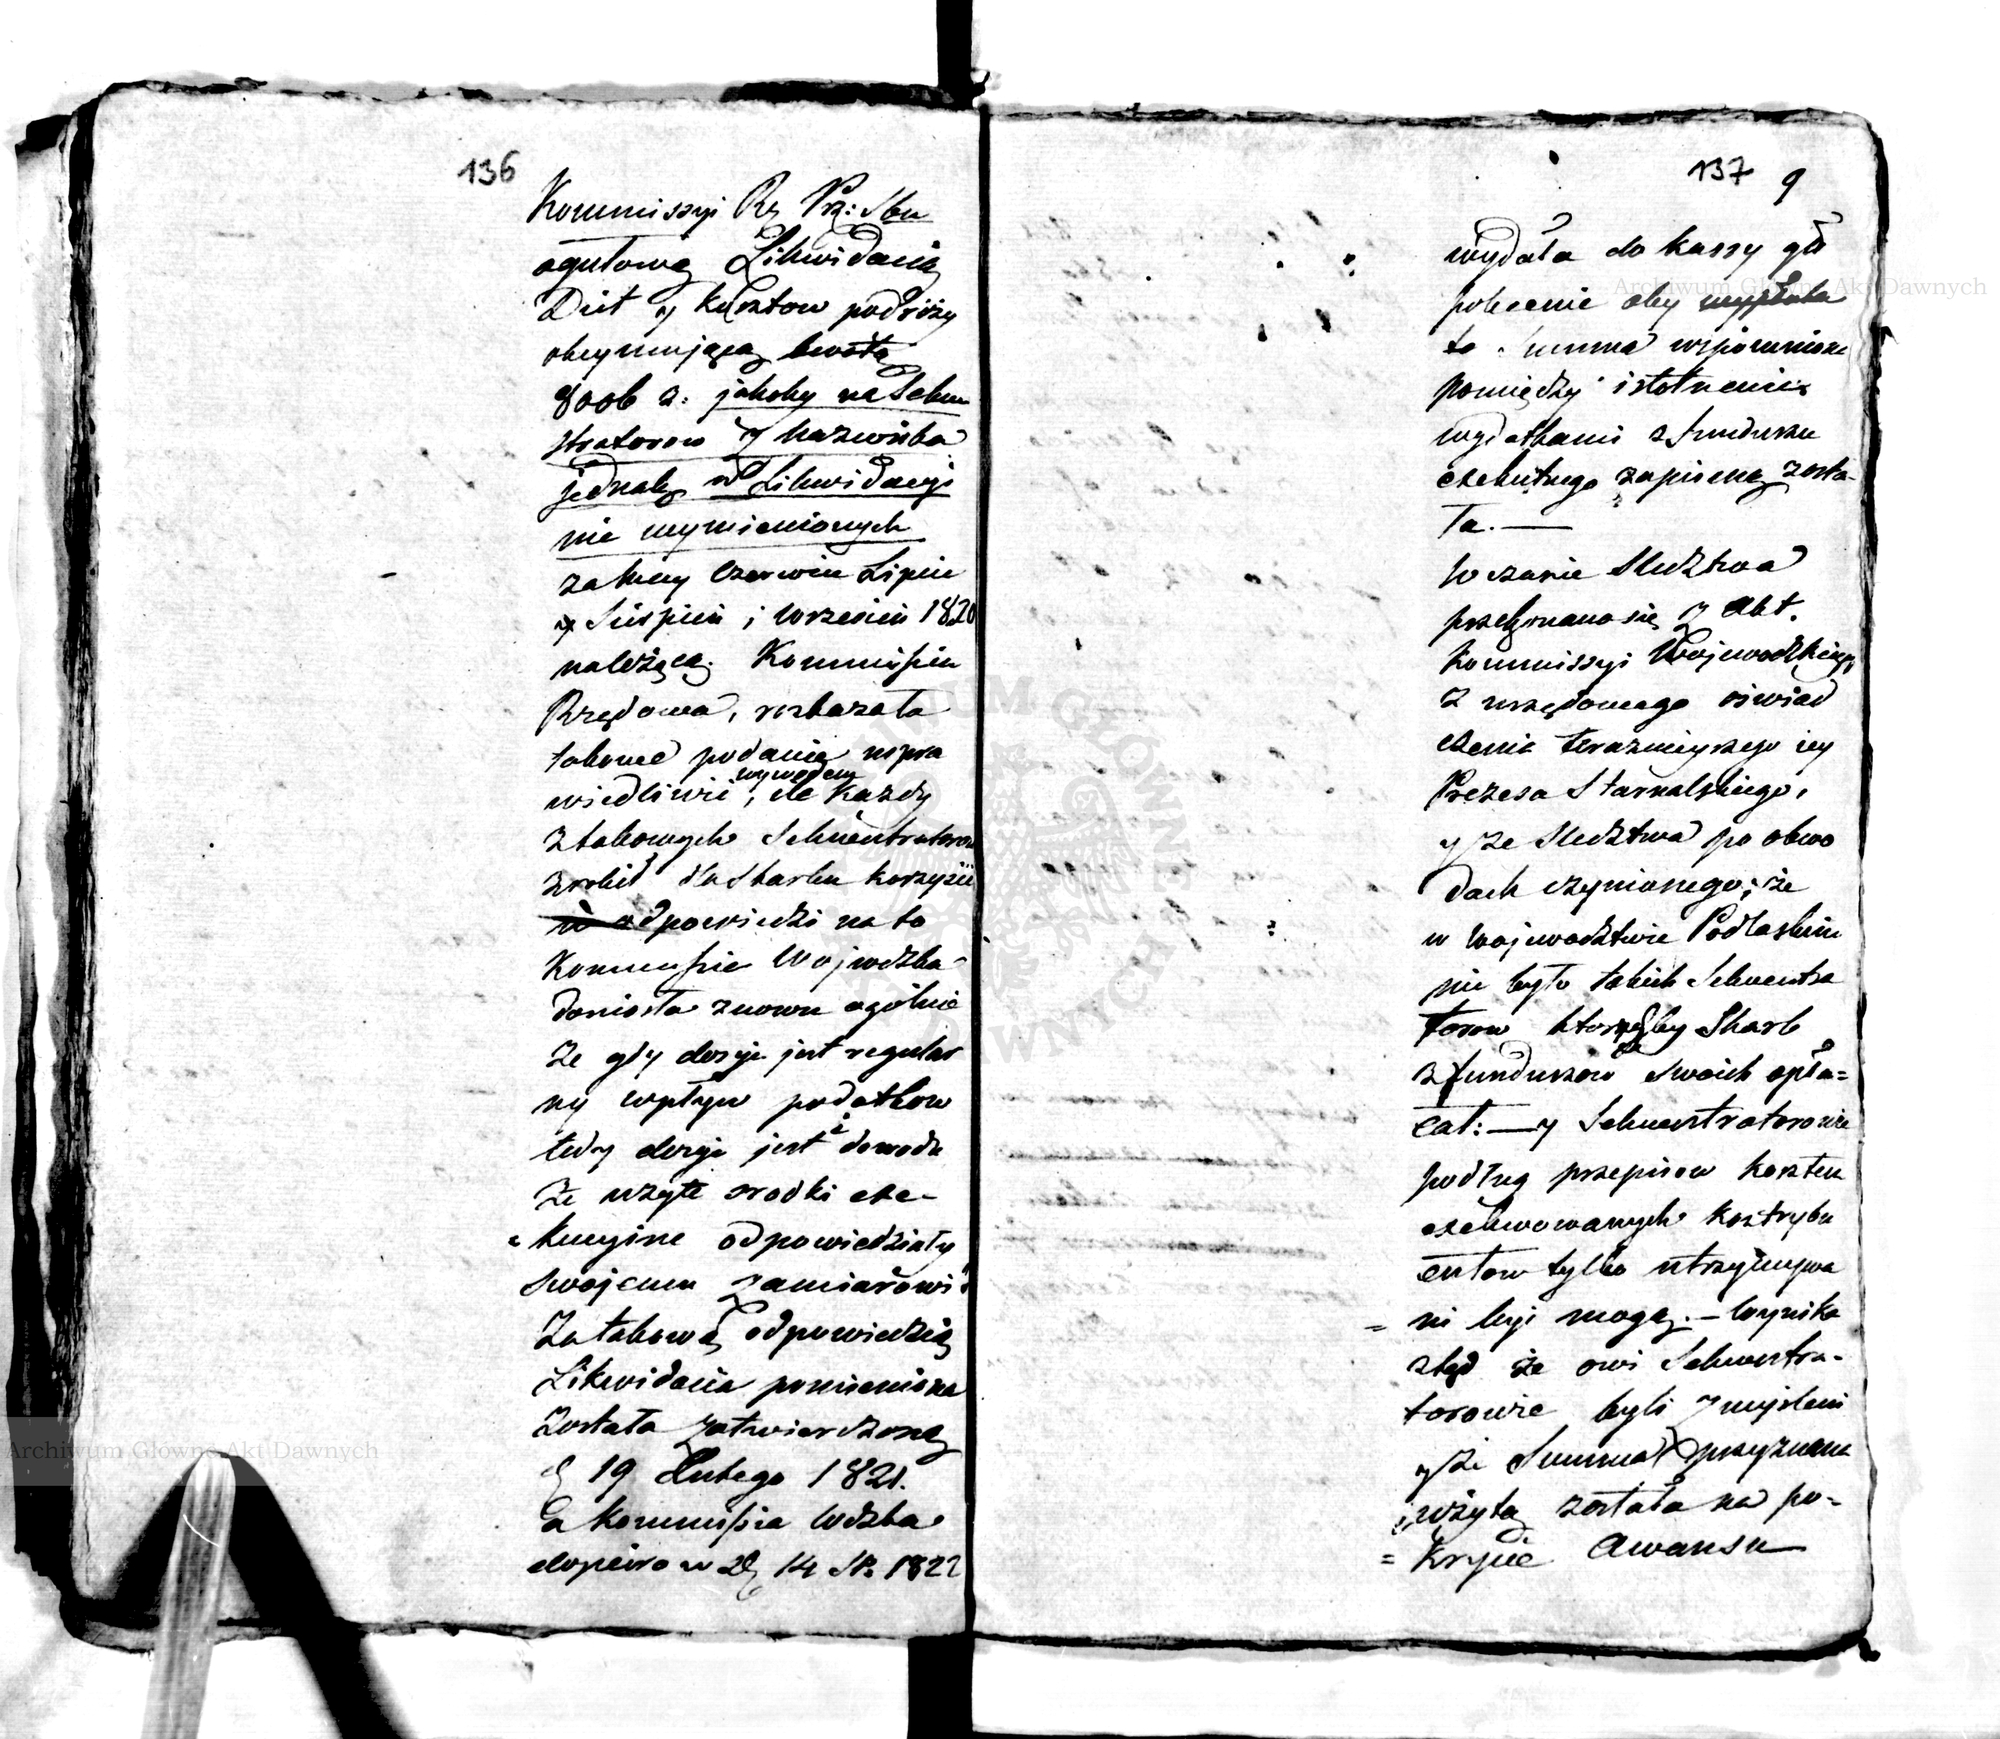 136
Kommissyi Rz Prz: Sku
ogułową Likwidacią
Diet y kosztow podroży
obeymującą kwotę
8006 z: jakoby na Sekwe
stratorow z nazwiska
jednak w Likwidacyi
nie wymienionych
za mcy Czerwiec Lipiec
y Sierpień i Wrzesień 1820
należącą. Kommissia
Rządowa, rozkazała
takowe podanie uspra
wiedliwić, wywodem ile Każdy
z takowych Sekwestratorow
zrobił dla Skarbu korzyści
odpowiedzi na to
Kommissia Wojwdzka
doniosła znowu ogólnie
że gdy dosyć jest regular
ny wpływ podatkow
tedy dosyć jest dowodu
że użyte srodki exe-
kucyine odpowiedziały
swojemu zamiarowi
Za takową odpowiedzią
Likwidacia pomieniona
została zatwierdzoną
d 19 Lutego 1821.
a Kommissia Wdzka
dopiero w d 14 St. 1822
137 9
wydała do kassy głł
polecenie aby wypłata
ta Summa wspomniona
pomiędzy istotnemi
wydatkami z funduszu
exekutnego zapisaną zosta-
ła. —
W czasie Sledztwa
przekonano się z Akt.
Kommissyi Wojewodzkiey
z urzędowego oświad
czenia teraznieyszego iey
Prezesa Starnalskiego,
y ze Sledztwa po obwo
dach czynionego; że
w Wojewodztwie Podlaskim
nie było takich Sekwestra
torow ktorychby Skarb
z funduszow swoich opła=
cał: — y Sekwestratorowie
podług przepisow kosztem
exekwowanych kontrybu
entow tylko utrzymywa
= ni być mogą. — Wynika
ztąd że owi Sekwestra-
torowie byli zmysleni
y że Summa przyznana
użytą została na po-
= krycie Awansu
Archiwum Główne Akt Dawnych
Archiwum Główne Akt Dawnych